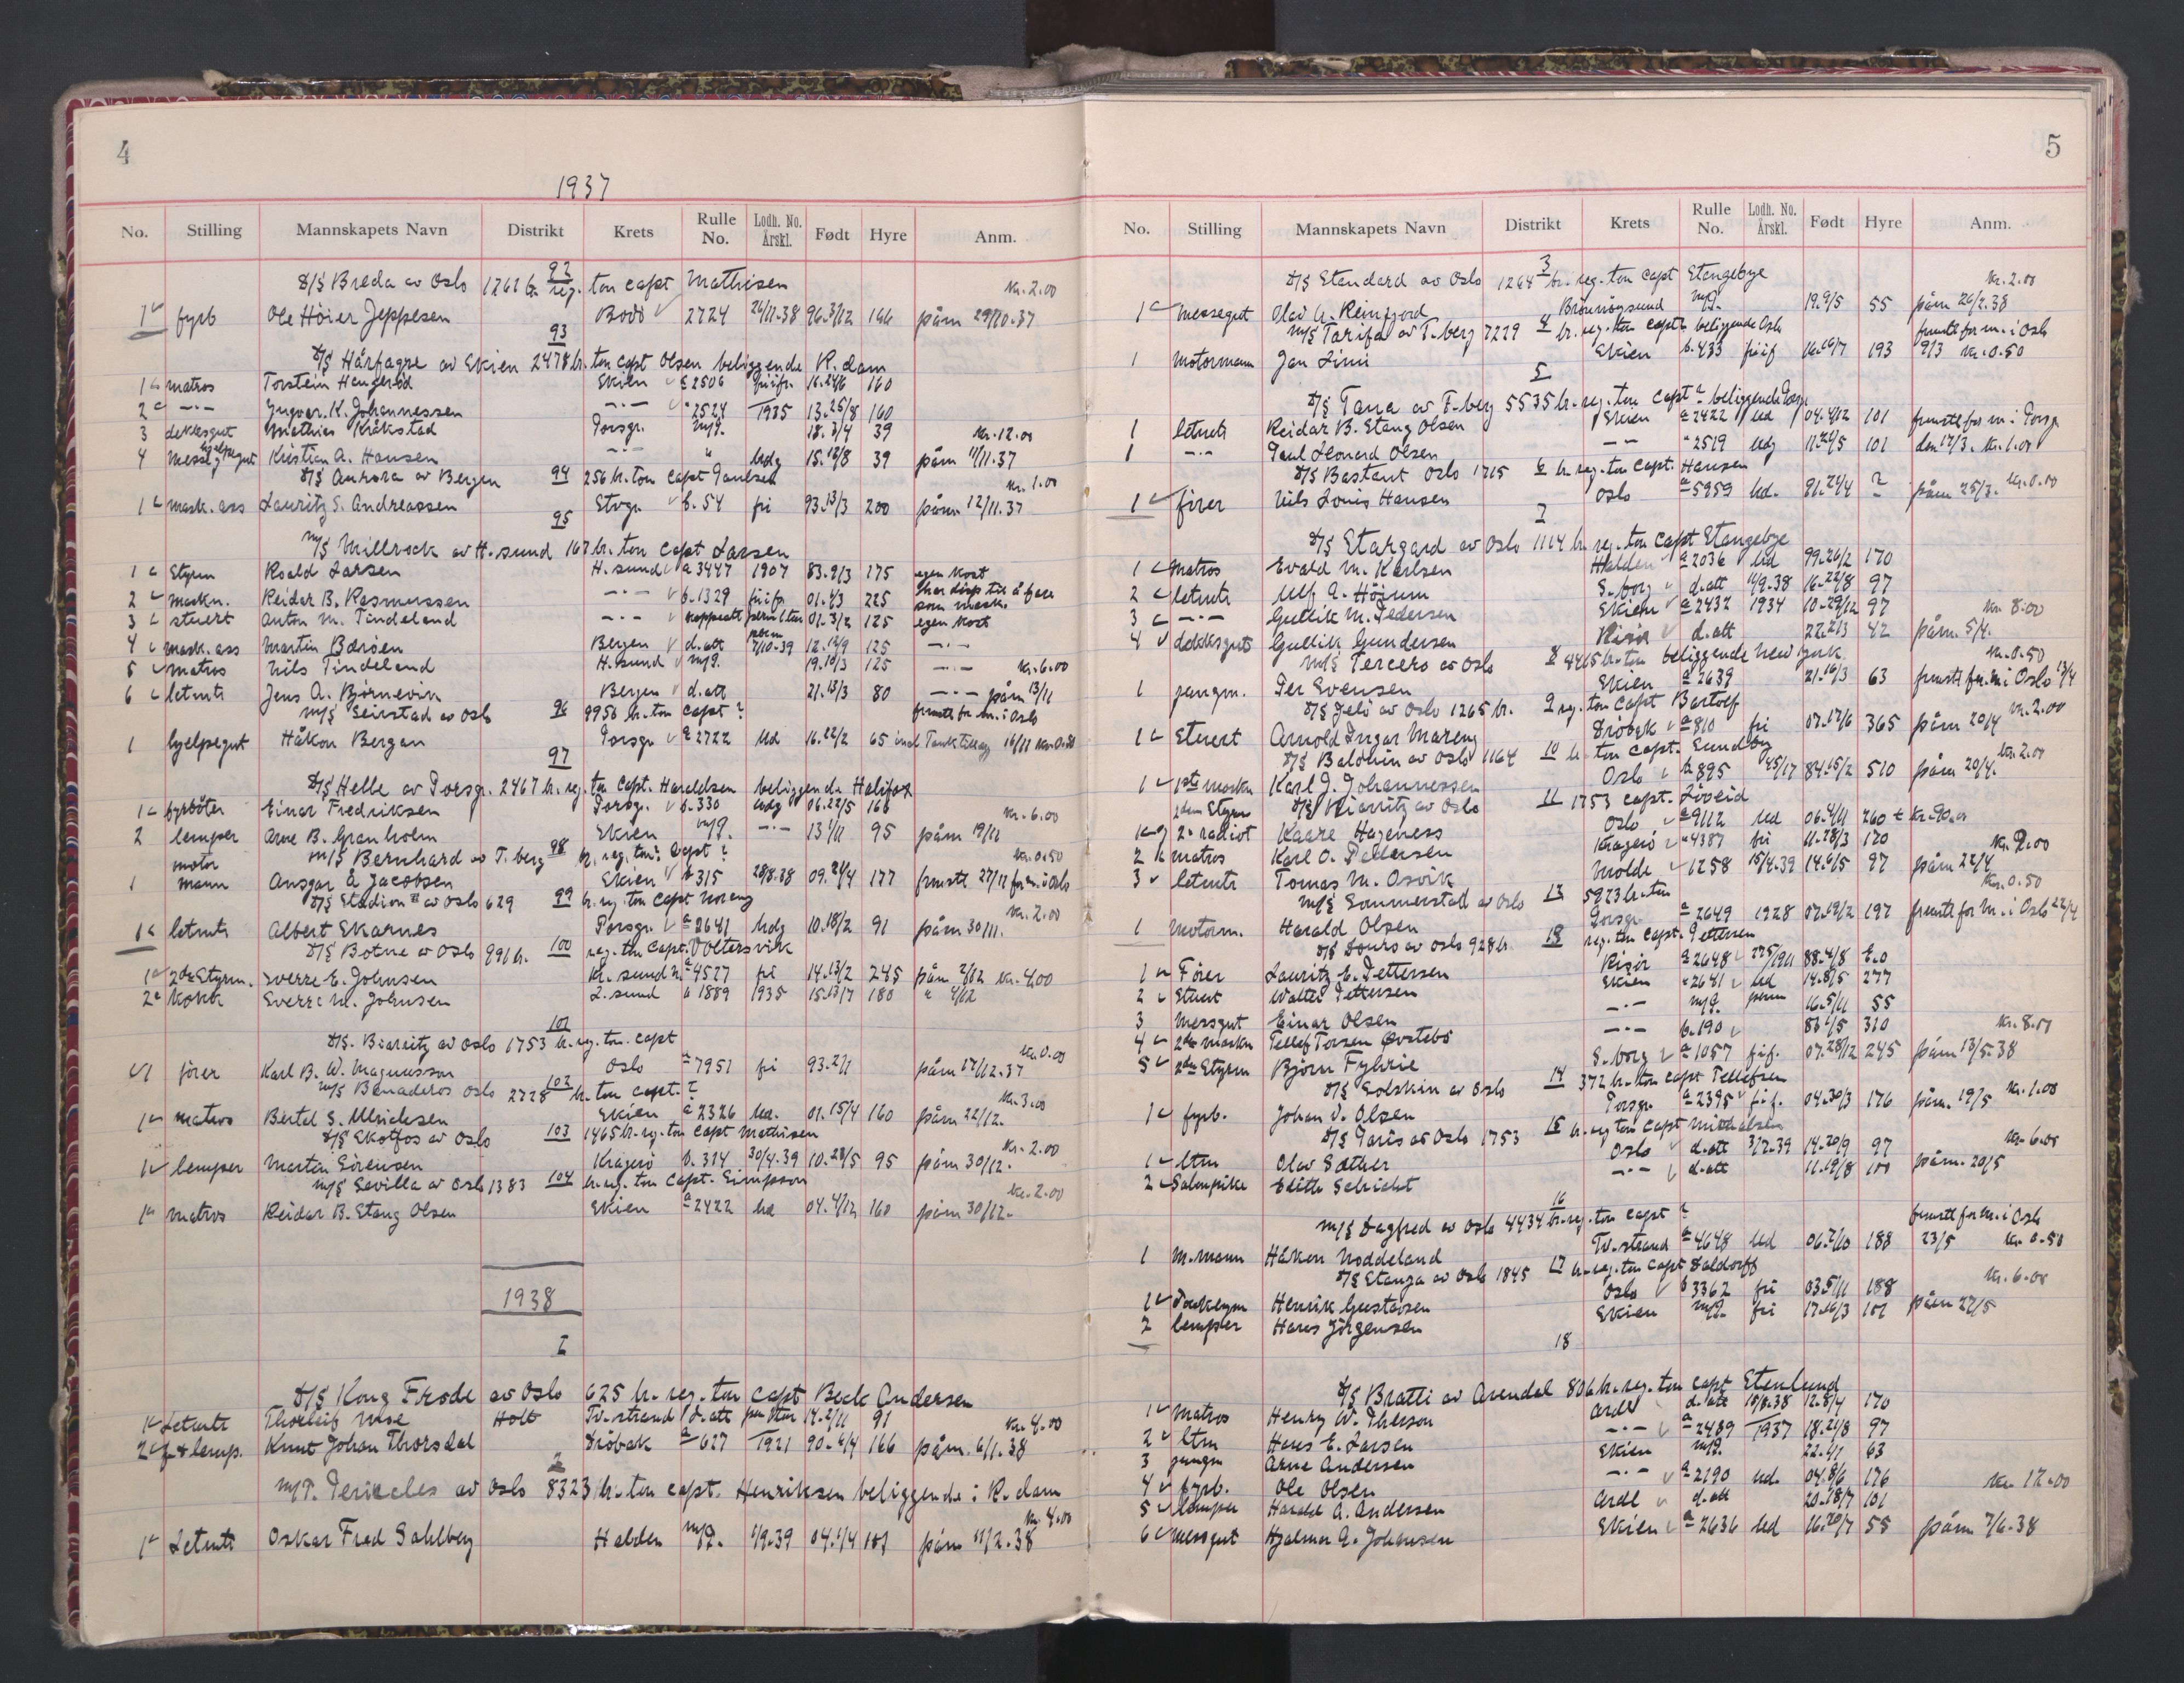 4
1937
No. Stilling Mannskapets Navn Distrikt Krets Rulle No. Lodh. No. Årskl. Født Hyre Anm.
92
D/S Breda av Oslo 1261 br. reg. ton capt Mathisen kr. 2.00
1 fyrb Ole Höier Jeppesen Bodö 2724 26/11.38 96.3/12 166 påm 29/10.37
93
D/S Hårfagre av Skien 2478 br. ton capt Olsen beliggende R.dam
1 matros Torstein Haugeröd Skien a 2506 friif. 16.24/6 160
2 -"- Yngvar. K. Johannessen -"- " 2524 1935 13.25/8 160
3 dekksgut Mathias Kråkstad Porsgr. m/P. 18.3/4 39 kr. 12.00
4 messegut Kristian A. Hansen -"- " udg 15.12/8 39 påm 11/11.37
D/S Aurora av Bergen 94 256 br. ton capt Paulsen kr. 1.00
1 mask. ass Lauritz S. Andreassen Stvgr. b. 54 fri 93.13/3 200 påm 12/11.37
95
m/S Millrock av H.sund 167 br. ton capt Larsen
1 Styrm Roald Larsen H.sund a 3447 1907 83.9/3 175 egen kost
2 maskn. Reidar B. Rasmussen -"- b. 1329 friif. 01.4/3 225 har disp til å fare som mask.
3 stuert Anton M. Tindeland -"- 01.3/2 125 egen kost
4 mask. ass Martin Bærøen Bergen d. att 7/10.39 12.12/9 125 -"-
5 matros Nils Tindeland H.sund m/P. 19.10/3 125 -"- kr. 6.00
6 letmtr Jens A. Bjørnevik Bergen d. att 21.13/3 80 -"- påm 13/11
m/S Seirstad av Oslo 96 9956 br. ton capt ? frmstt for m. i Oslo
1 hjelpegut Håkon Bergan Porsgr a 2722 Ud 16.22/2 65 incl Tanktillegg 16/11 kr. 0.50
97
D/S Helle av Porsgr. 2467 br. reg. ton capt. Haraldsen beliggende Halifax
1 fyrböter Einar Fredriksen Porsgr. b. 330 udg 06.22/5 166 kr. 6.00
2 lemper Arne B. Granholm Skien m/P. -"- 13 1/11 95 påm 19/11
m/S Bernhard av T.berg 98 br. reg. ton? Capt ? kr. 0.50
1 motor mann Ansgar Å Jacobsen Skien b 315 28/8.38 09.21/4 177 frmstt 27/11 for m. i Oslo
D/S Stadion II av Oslo 629 99 br. reg. ton capt Noreng kr. 2.00
1 letmtr Albert Skarnes Porsgr. a 2641 udg 10.18/2 91 påm 30/11.
D/S Botne av Oslo 991 br. 100 reg. ton capt. Voltersvik
1 2den Styrm. Sverre E. Johnsen Kr. sund N. a 4527 fri 14.13/2 245 påm 2/12 kr. 4,00
2 kokk Sverre M. Johnsen L.sund a 1889 1935 15.13/7 180 " 4/12
101
D/S. Biarritz av Oslo 1753 br. reg. ton. capt kr. 0.00
1 förer Karl B. W. Magnusson Oslo a 7951 fri 93.2/11 påm 17/12.37
m/S Benaderos Oslo 2728 102 br. ton capt. ? kr. 3.00
1 matros Bertel S. Ulrichsen Skien a 2326 Ud. 01.15/4 160 påm 22/12.
D/S Skotfos av Oslo 103 1465 br. rg. ton capt Mathisen kr. 2.00
1 lemper Martin Sörensen Kragerö b. 314 30/4.39 10.28/5 95 påm 30/12.
m/S Sevilla av Oslo 1383 104 br. reg. ton capt. Simpson kr. 2.00
1 matros Reidar B. Stang Olsen Skien a 2422 Ud 04.4/12 160 påm 30/12.
1938
I
D/S Kong Frode av Oslo 625 br. reg. ton capt Beck Andersen
1 Letmtr Thorleif Moe Holt Tv.strand d. att 14.2/11 91 kr. 4.00
2 f & lemp. Knut Johan Thorsdal Dröbak a 627 1921 90.4/4 166 påm. 6/1.38
2
m/T. Pericles av Oslo 8323 br. ton capt. Henriksen beliggende i R.dam kr. 4.00
1 Letmtr Oskar Fred Sahlberg Halden m/P. 1/9.39 04.1/4 101 påm 11/2.38
5
No. Stilling Mannskapets Navn Distrikt Krets Rulle No. Lodh. No. Årskl. Født Hyre Anm.
3
D/S Standard av Oslo 1264 br. reg. ton capt Stangebye kr. 2.00
1 messegut Olav A. Reinfjord Brönnöysund m/P. 19.9/5 55 påm 26/2.38
m/S Tarifa av T.berg 7229 4 br. reg. ton capt beliggende Oslo frmstt for m. i Oslo
1 motormann Jan Linn Skien b. 433 friif 16.16/7 193 9/3 kr. 0.50
5
D/S Tana av T.berg 5535 br. reg. ton capt ? beliggende Porsgr
1 letmtr Reidar B. Stang Olsen Skien a 2422 Ud 04.4/12 101 frmstt for m. i Porsgr.
1 -"- Paul Leonard Olsen -"- " 2519 Udg 11.21/5 101 den 17/3. kr. 1.00
D/S Bastant Oslo 1715 6 br. reg. ton capt. Hansen kr. 0.00
1 förer Nils Louis Hansen Oslo a 5959 Ud. 81.24/4 ? påm 25/3.
7
D/S Stargard av Oslo 1114 br. reg. ton capt Stangebye
1 Matros Evald M. Karlsen Halden a 2036 Ud 99.26/2 170
2 letmtr Ulf A. Höium S.borg d. att 11/9.38 16.22/8 97
3 -"- Gullik M. Pedersen Skien a 2432 1934 10.29/12 97 kr 8.00
4 dekksgut Gullik Gundersen Risör d. att 22.2/3 42 påm. 5/4.
m/S Tercero av Oslo 8 4415 br. ton beliggende New York kr. 0.50
1 jungm. Per Evensen Skien a 2639 21.16/3 63 frmstt for m. i Oslo 13/4
D/S Jelö av Oslo 1265 br. 9 reg. ton capt Bartolf kr. 2.00
1 Stuert Arnold Ingar Mareng Dröbak a 810 fri 07.17/6 365 påm 20/4
D/S Baldwin av Oslo 1164 10 br. ton capt. Sundby kr. 2.00
1 1ste maskn Karl J. Johannessen Oslo b 895 45/17 84.15/2 510 påm 20/4.
D/S Biarritz av Oslo 11 1753 capt. Löveid
1 2den Styrm og radiot Kaare Hagenes Oslo a 9112 Ud 06.4/11 260 + kr. 90.00
2 matros Karl O. Pettersen Kragerö " 4387 fri 11.28/3 170 kr. 2.00
3 letmtr Tomas M. Osvik Molde 1258 15/4.39 14.6/5 97 påm 22/4
m/S Sommerstad av Oslo 12 5923 br. ton kr. 0.50
1 motorm. Harald Olsen Porsgr. a 2649 1928 07.19/2 197 frmstt for m. i Oslo 22/4
D/S Douro av Oslo 928 br. 13 reg. ton capt. Pettersen
1 Förer Lauritz E. Pettersen Risör a 2648 225/1911 88.4/8 E.O
2 Stuert Walter Pettersen Skien " 2641 Ud 14.8/5 277
3 messgut Einar Olsen -"- m/P. perm 16.5/11 55
4 2den maskn Tellef Torsen Övstebö -"- b. 190 310 kr. 8.00
5 2den Styrm Björn Fylwie S.borg a 1057 friif. 07.28/12 245 påm 13/5.38
D/S Solskin av Oslo 14 372 br. ton capt Tellefsen
1 fyrb. Johan O. Olsen Porsgr. a 2395 friif. 04.30/3 176 påm. 19/5 kr. 1.00
D/S Paris av Oslo 1753 15 br. reg ton capt Mikkelsen
1 ltm Olav Sæther Oslo d. att 3/2.39 14.20/9 97 kr. 6.00
2 Salongpike Edith Schicht -"- d. att 11.19/8 100 påm. 20/5
16
m/S Dagfred av Oslo 4434 br. reg. ton capt ? frmstt for m. i Oslo
1 m.mann Håkon Noddeland Tv.strand a 4648 Ud 06.7/10 188 23/5 kr. 0.50
D/S Stanja av Oslo 1845 17 br. reg. ton capt Daldorff
1 Donkeym Henrik Gustavsen Oslo b 3362 fri 03.5/11 188 kr. 6.00
2 lemper Hans Jörgensen Skien m/P. fri 17.16/3 101 påm 27/5
18
D/S Bratli av Arendal 806 br. reg. ton capt Stenlund
1 Matros Henry W. Iherson Ardl d. att 15/8.38 12.8/4 170
2 ltm Hans E. Larsen -"- a 2489 1937 18.21/8 97
3 jungm Arne Andersen Skien m/P. 22.4/1 63
4 fyrb. Ole Olsen -"- a 2190 ud. 04.8/6 176
5 lemper Harald A. Andersen Ardl d. att 20.18/7 101 kr. 12.00
6 messgut Hjalmar A. Johansen Skien a 2636 Ud 16.20/7 55 påm 7/6.38